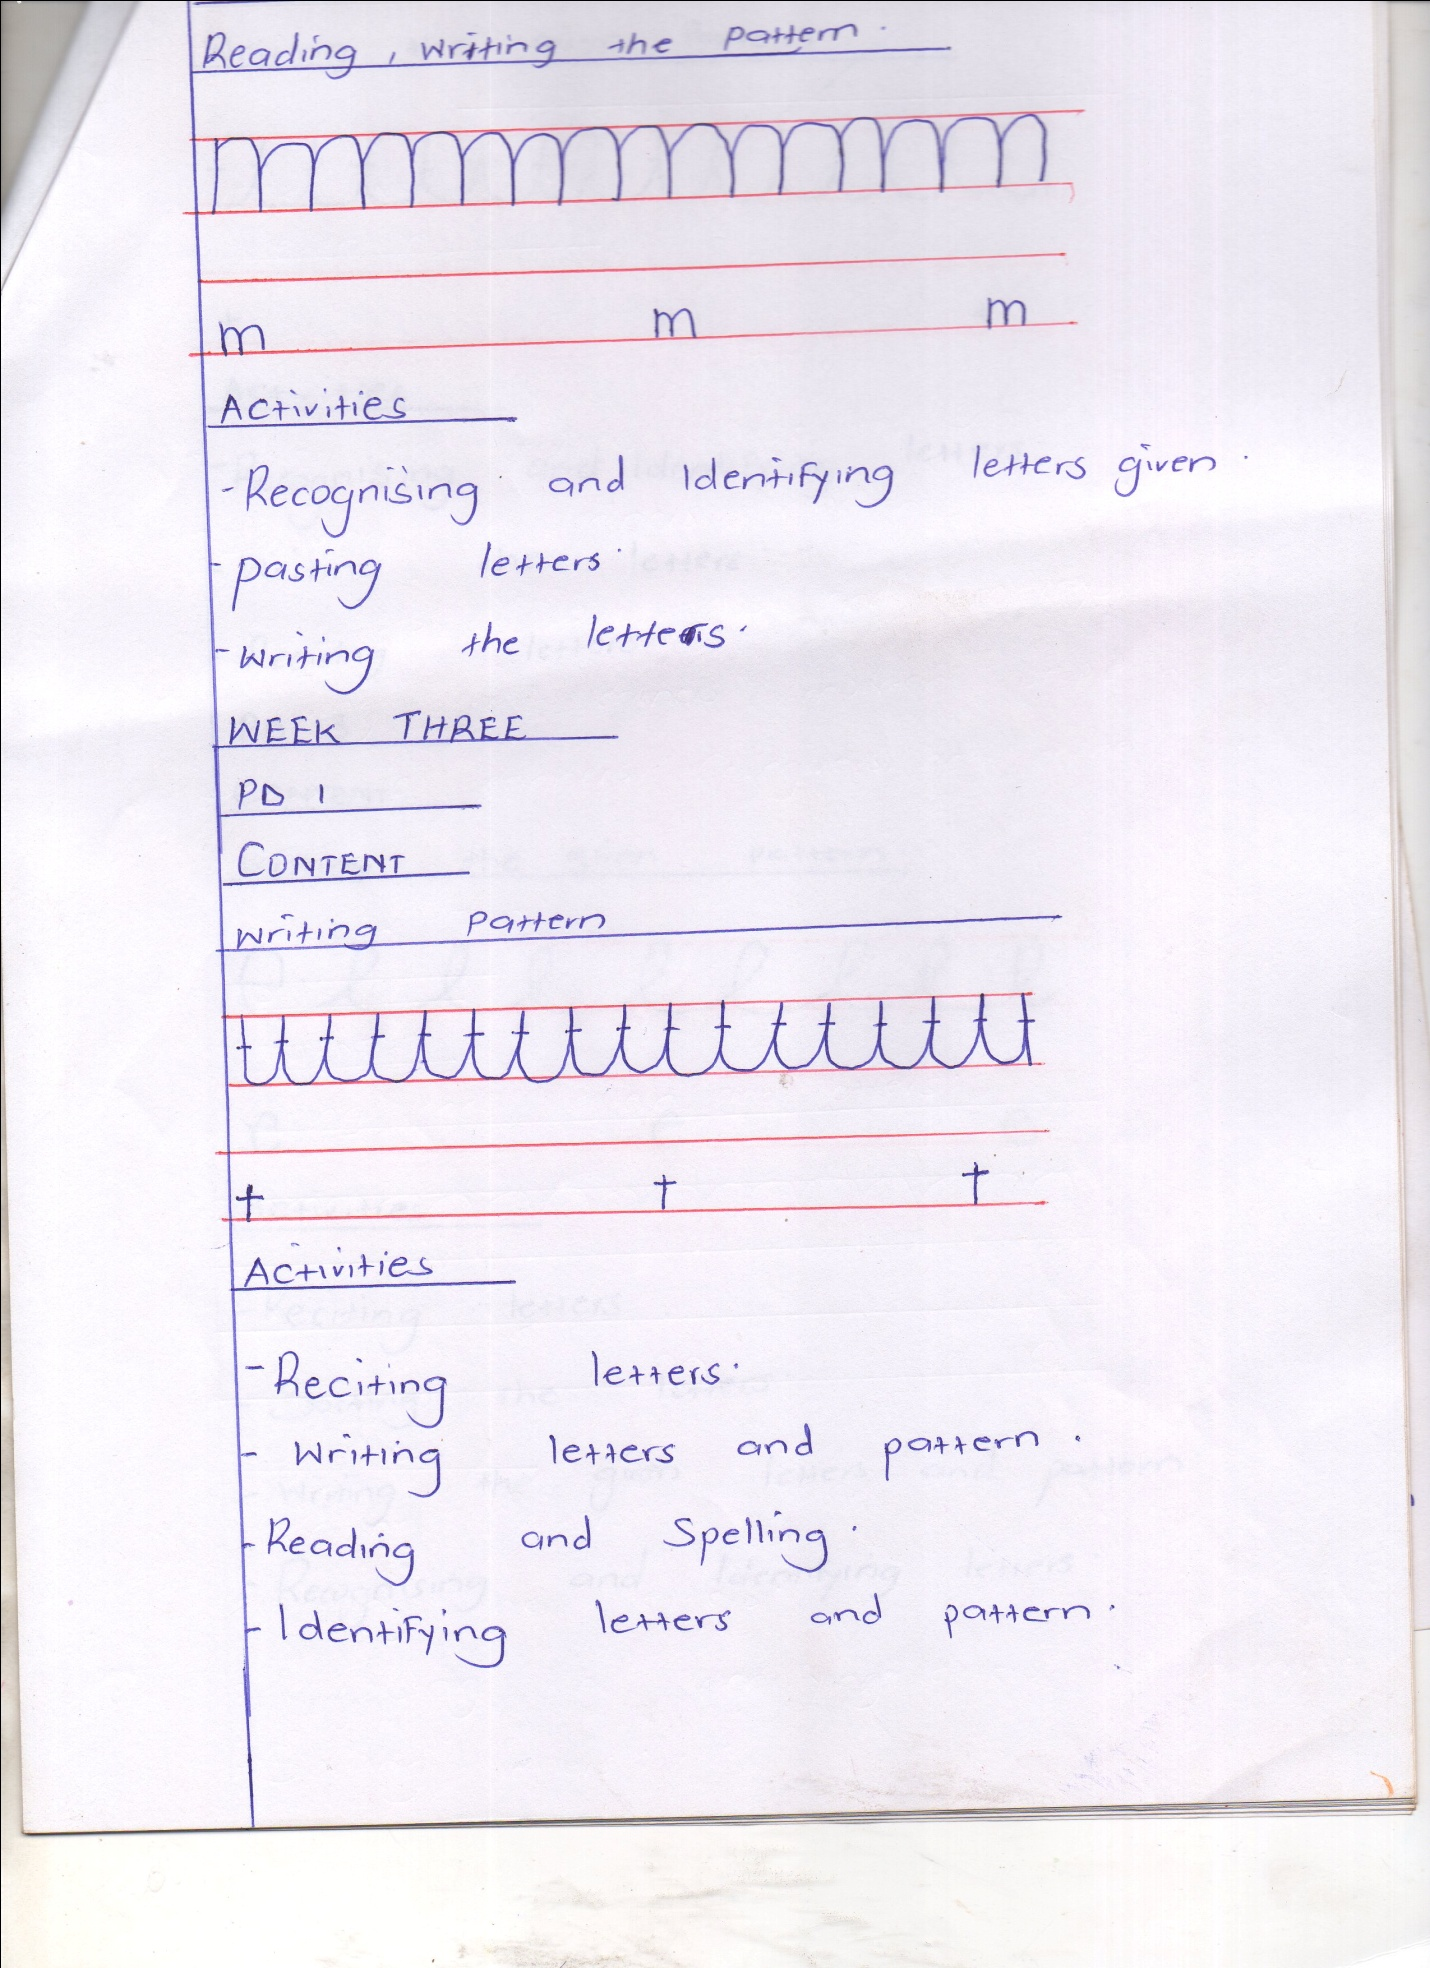 Reading, writing the pattern.
m m m
Activities
- Recognising and Identifying letters given.
- pasting letters.
- writing the letters.
WEEK THREE
PD 1
CONTENT
writing pattern
t t t
Activities
- Reciting letters.
- Writing letters and pattern.
- Reading and Spelling.
- Identifying letters and pattern.